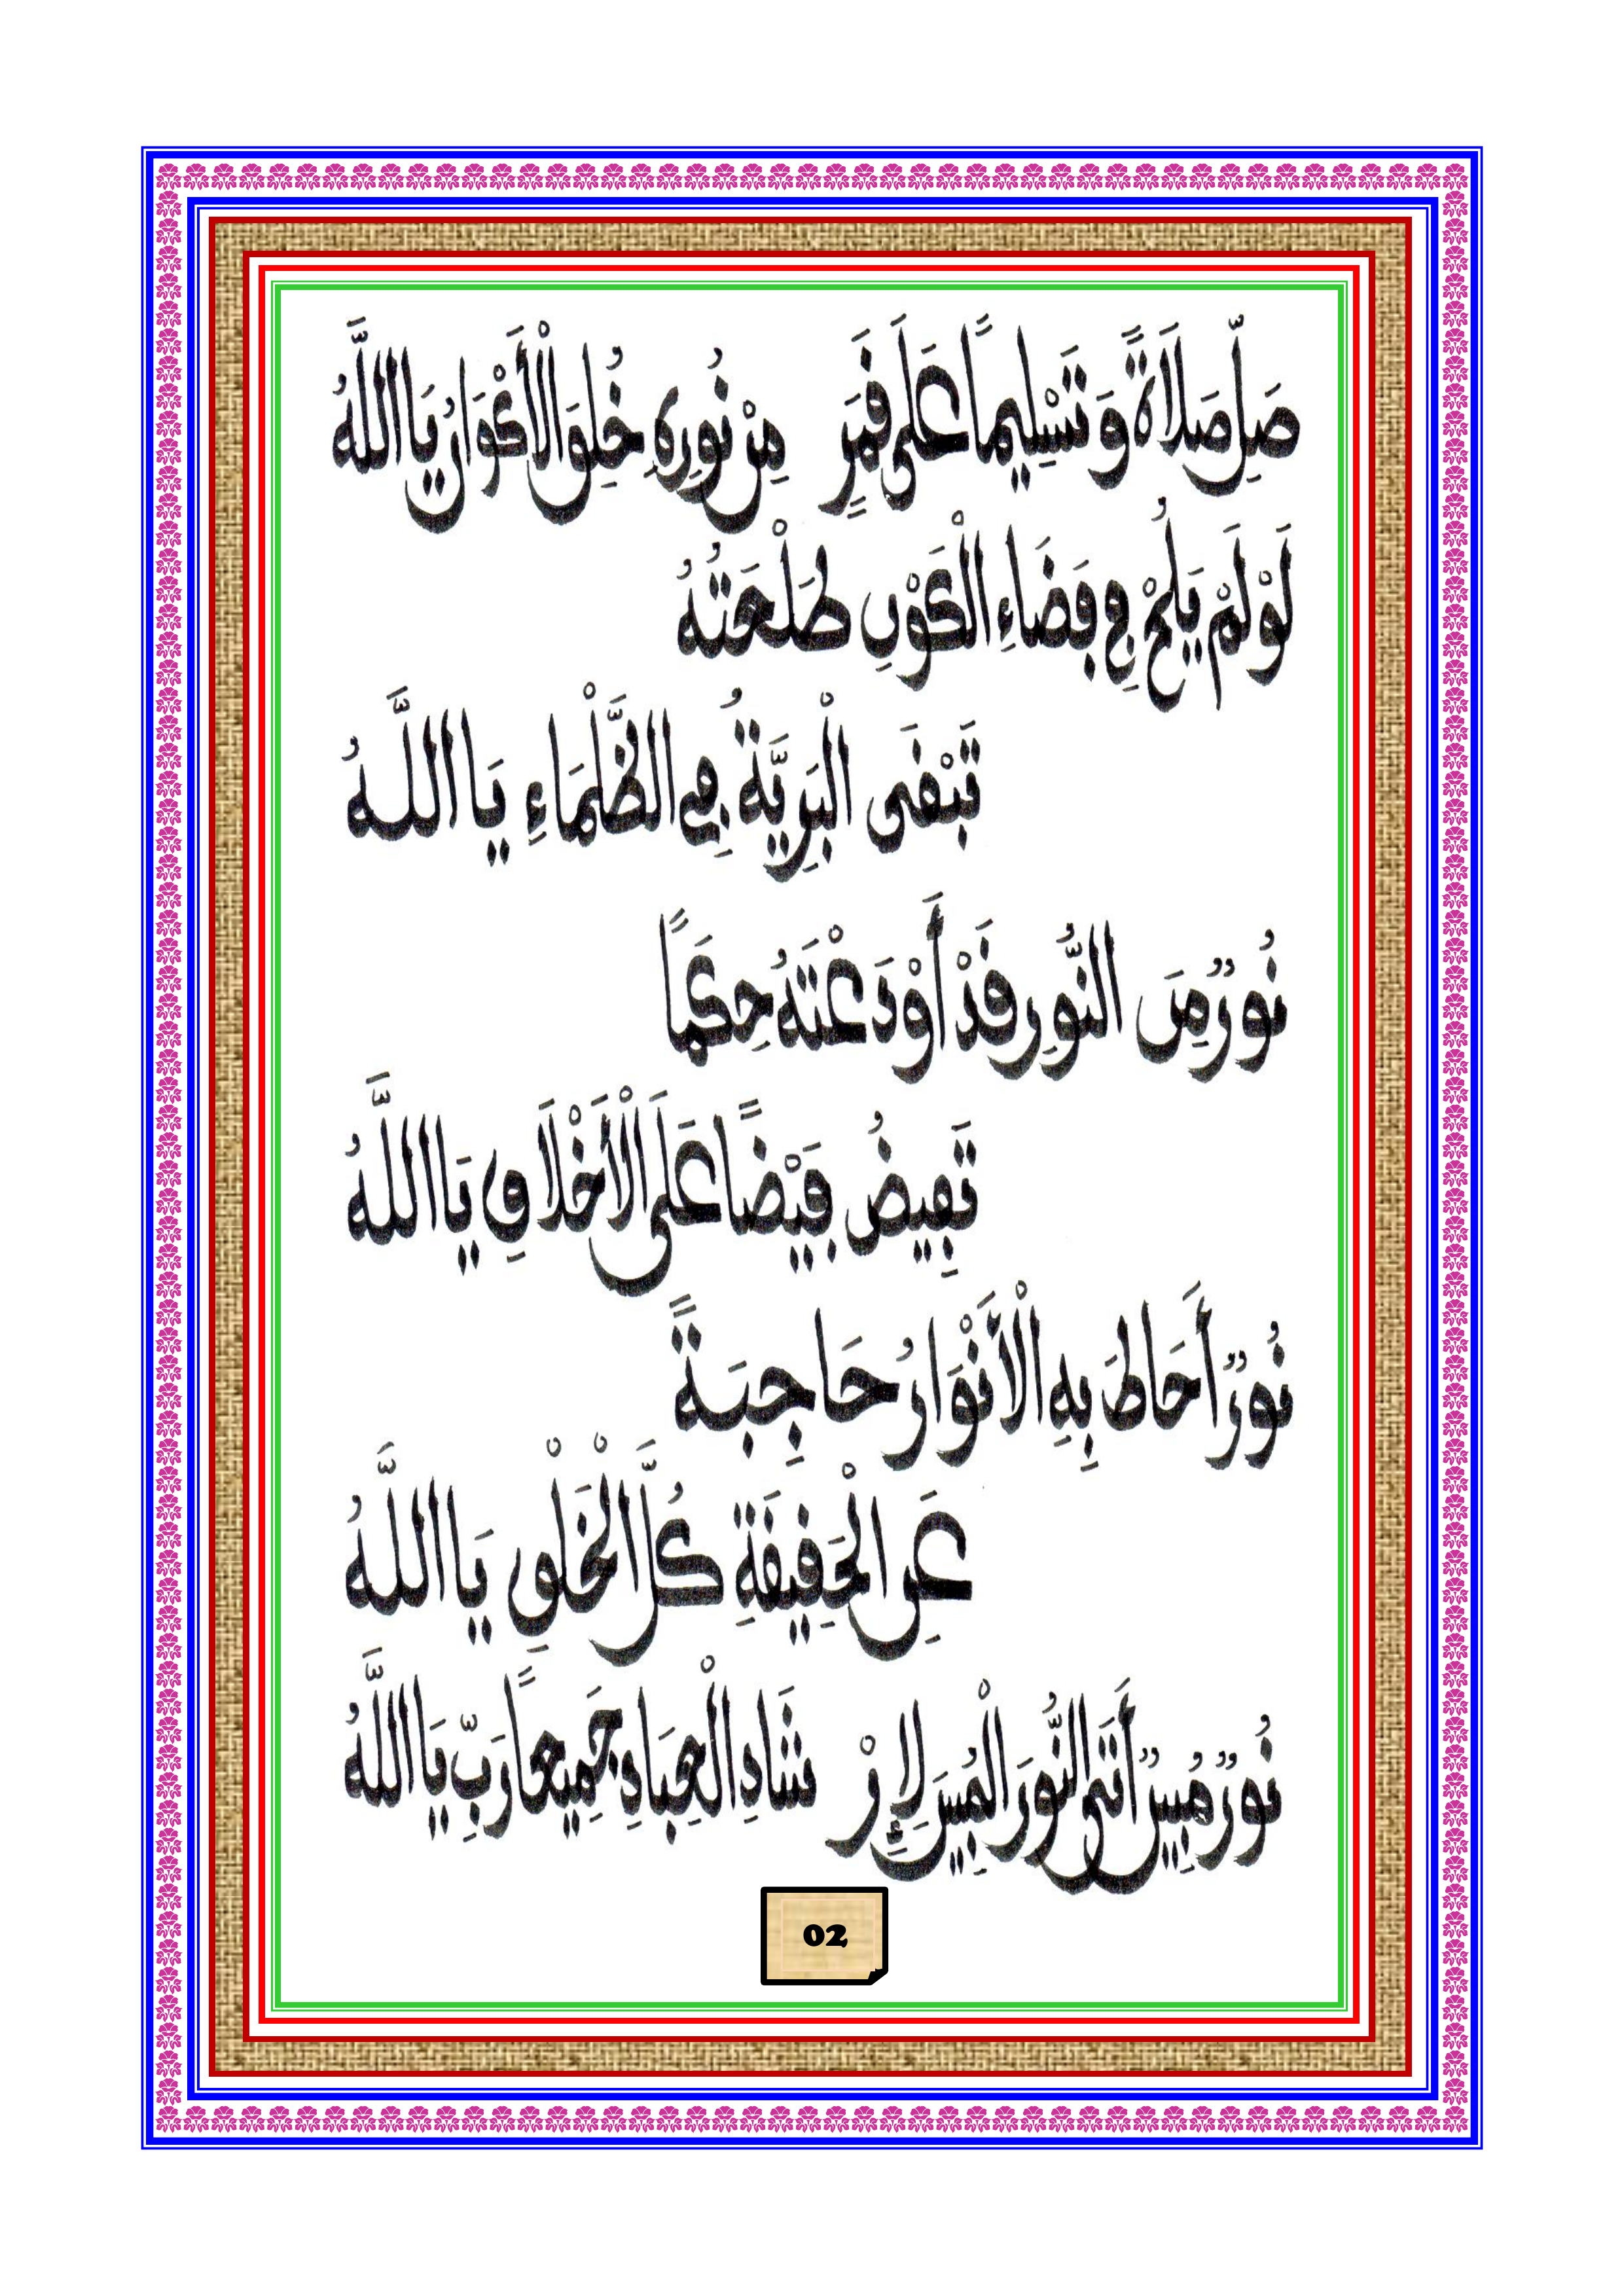 صَلِّ صَلَاةً وَتَسْلِيماً عَلَى قَمَرٍ مِنْ نُورِهِ خُلِقَ الْأَكْوَانُ يَا اللَّهُ
لَوْ لَمْ يَلُحْ فِي فَضَاءِ الْكَوْنِ طَلْعَتُهُ
تَبْقَى الْبَرِيَّةُ فِي الظَّلْمَاءِ يَا اللَّهُ
نُورٌ مِنَ النُّورِ قَدْ أَوْدَعْتَهُ حِكَمًا
تَفِيضُ فَيْضًا عَلَى الْأَخْلَاقِ يَا اللَّهُ
نُورٌ أَحَاطَ بِهِ الْأَنْوَارُ حَاجِبَةً
عَنِ الْحَقِيقَةِ كُلَّ الْخَلْقِ يَا اللَّهُ
نُورٌ مُبِينٌ أَتَى النُّورَ الْمُبِينَ لِإِرْ شَادِ الْعِبَادِ جَمِيعاً رَبِّ يَا اللَّهُ
02